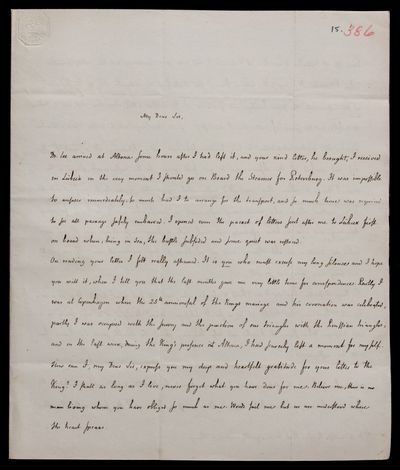 15. 386
My Dear Sir,
Dr Lee arrived at Altona some hours after I had left it, and your kind letter, he brought, I received
in Lübeck in the very moment I should go on Board the Steamer for Petersburg. It was impossible
to answer immediately. So much had I to arrange for the transport, and so much time was required
to see all packages safely embarked. I opened even the parcel of letters sent after me to Lübeck first
on board when, being in sea, the bustle subsided and some quiet was restored.
On reading your letter I felt really ashamed. It is you who must excuse my long silence and I hope
you will it, when I tell you that the last months gave me very little time for correspondence. Partly I
was at Copenhagen where the 25th anniversary of the Kings marriage and his coronation was celebrated,
partly I was occupied with the survey and the junction of our triangles with the Prussian triangles,
and in the last week, during the King's presence at Altona, I had scarcely left a moment for myself.
How can I, my Dear Sir, express you my deep and heartfelt gratitude for your letter to the
King? I shall as long as I live, never forget what you have done for me. Believe me, there is no
man living whom you have obliged so much as me. Words fail me but we are understood where
the heart speaks.